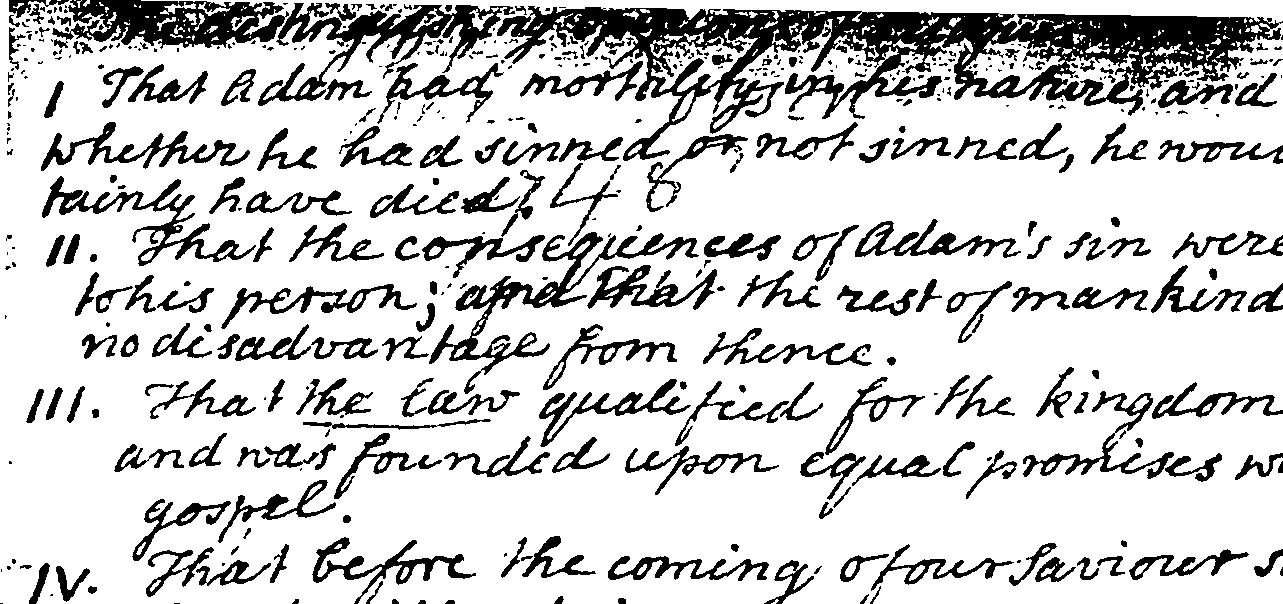 The distinguishing opinions of
I That Adam had mortality in his nature, and
whether he had sinned or not sinned, he wou
tainly have died. 48
II. That the consequences of Adam's sin were
to his person; and that the rest of mankind
no disadvantage from thence.
III. That the law qualified for the kingdom
and was founded upon equal promises w
gospel.
IV. That before the coming of our Saviour s